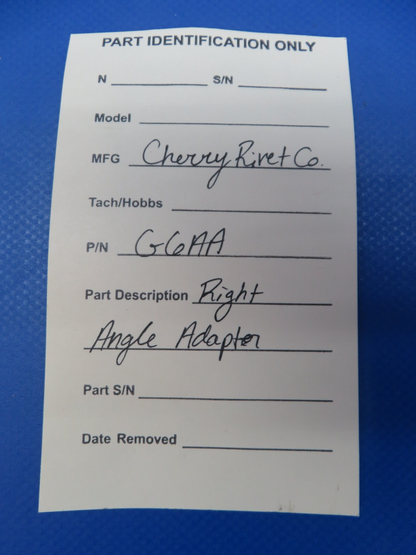 PART IDENTIFICATION ONLY
N S/N
Model
MFG Cherry Rivet Co.
Tach/Hobbs
P/N G6AA
Part Description Right
Angle Adapter
Part S/N
Date Removed